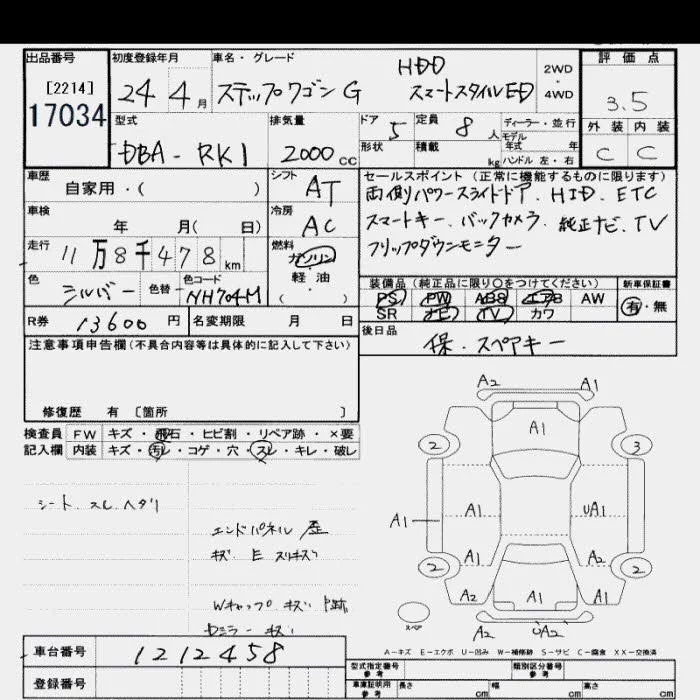 出品番号 初度登録年月 車名・グレード 評価点
[2214] 17034 24年 4月 ステップワゴン G HDD スマートスタイルED 2WD・4WD 3.5
型式 排気量 ドア 5 定員 8人 ディーラー・並行 外装 内装
DBA-RK1 2000cc 形状 積載 kg モデル年式 年 ハンドル 左・右 C C
車歴 自家用・( ) シフト AT セールスポイント(正常に機能するものに限ります)
両側パワースライドドア. HID. ETC
車検 年 月( 日) 冷房 AC スマートキー. バックカメラ. 純正ナビ. TV
走行 11万8千478km 燃料 ガソリン 軽・油 ( ) フリップダウンモニター
色 シルバー 色替 色コード NH704M 装備品(純正品に限り○をつけてください) 新車保証書
PS PW ABS エアB AW 有・無
SR ナビ TV カワ
R券 13600円 名変期限 月 日 後日品 保. スペアキー
注意事項申告欄(不具合内容等は具体的に記入して下さい)
修復歴 有 〔箇所 〕
検査員 FW キズ・飛石・ヒビ割・リペア跡・×要
記入欄 内装 キズ・汚レ・コゲ・穴・スレ・キレ・破レ
シート. スレ. ヘタリ
エンドパネル 歪
キズ E スリキズ
Wキャップ キズ 跡
ミラー キズ
A2 A1
A1
2 3
A1 A1 UA1
A1 A2
2 2
A2 A1 A1
スペア
A2 UA2
A-キズ E-エクボ U-凹み W-補修跡 S-サビ C-腐食 XX-交換済
車台番号 1212458
登録番号
型式指定番号 参考 類別区分番号 参考
車庫証明用 参考 長さ cm 幅 cm 高さ cm